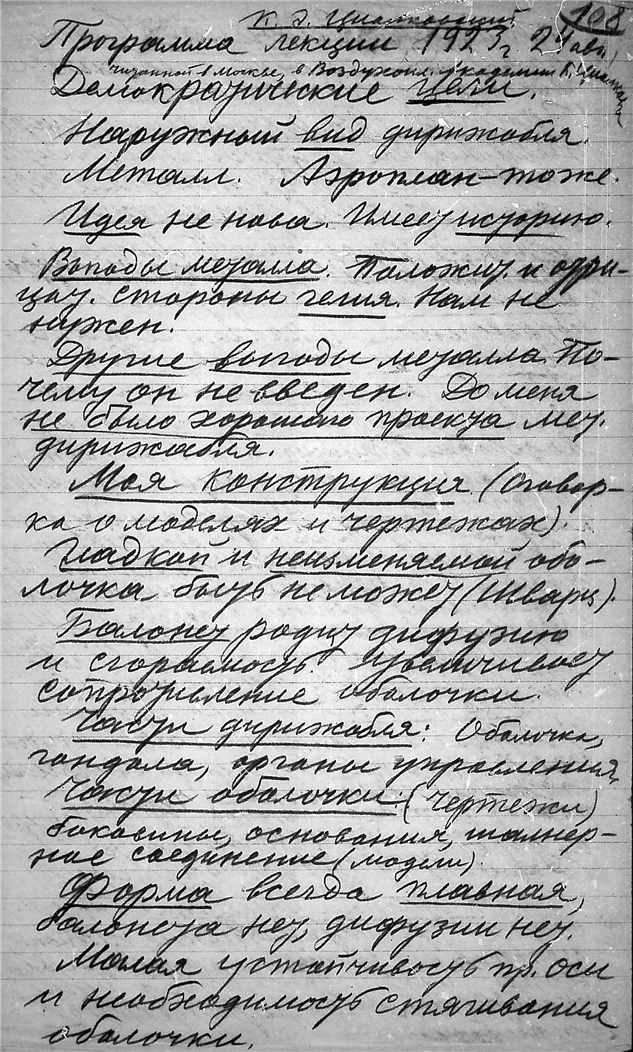 108
К. Э. Циолковский
Программа лекции 1923 г. 24 авг.
читанной в Москве, в Воздухопл. Академии К. Циолковск
Демократические цели.
Наружный вид дирижабля.
Металл. Аэроплан – тоже.
Идея не нова. Имеет историю.
Выгоды металла. Положит. и отри-
цат. стороны гелия. Нам не
нужен.
Другие выгоды металла. По-
чему он не введен. До меня
не было хорошего проекта мет.
дирижабля.
Моя конструкция (Оговор-
ка о моделях и чертежах).
Гладкой и неизменяемой обо-
лочка быть не может (Шварц).
Балонет родит дифузию
и сгораемость. Увеличивает
сопротивление оболочки.
Части дирижабля: Оболочка,
гондола, органы управления,
Части оболочки: (Чертежи)
боковины, основания, шалнер-
ное соединение (модели).
Форма всегда плавная,
балонета нет, дифузии нет.
Малая устойчивость пр. оси
и необходимость стягивания
оболочки.